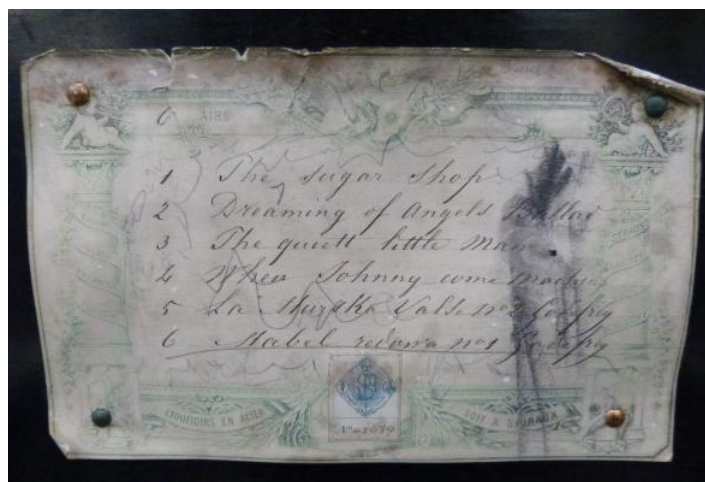 6 AIRS
1 The sugar shop
2 Dreaming of Angels Ballad
3 The quiett little man
4 When Johnny come
5 La Valse nº 2 Godfrey
6 Mabel redowa nº 1 Godfrey
ETOUFFOIRS EN ACIER
SOIT A SPIRAUX